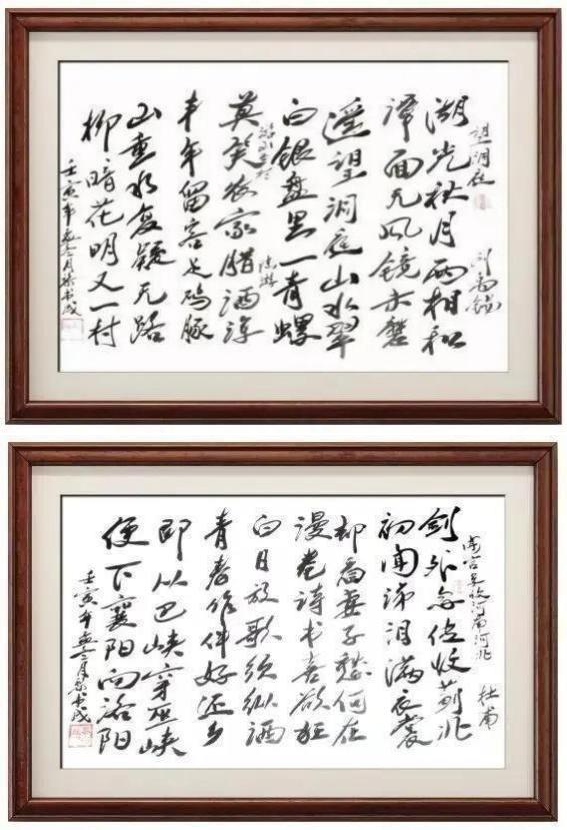 望洞庭 刘禹锡
湖光秋月两相和
潭面无风镜未磨
遥望洞庭山水翠
白银盘里一青螺
游山西村 陆游
莫笑农家腊酒浑
丰年留客足鸡豚
山重水复疑无路
柳暗花明又一村
壬寅年
闻官军收河南河北 杜甫
剑外忽传收蓟北
初闻涕泪满衣裳
却看妻子愁何在
漫卷诗书喜欲狂
白日放歌须纵酒
青春作伴好还乡
即从巴峡穿巫峡
便下襄阳向洛阳
壬寅年